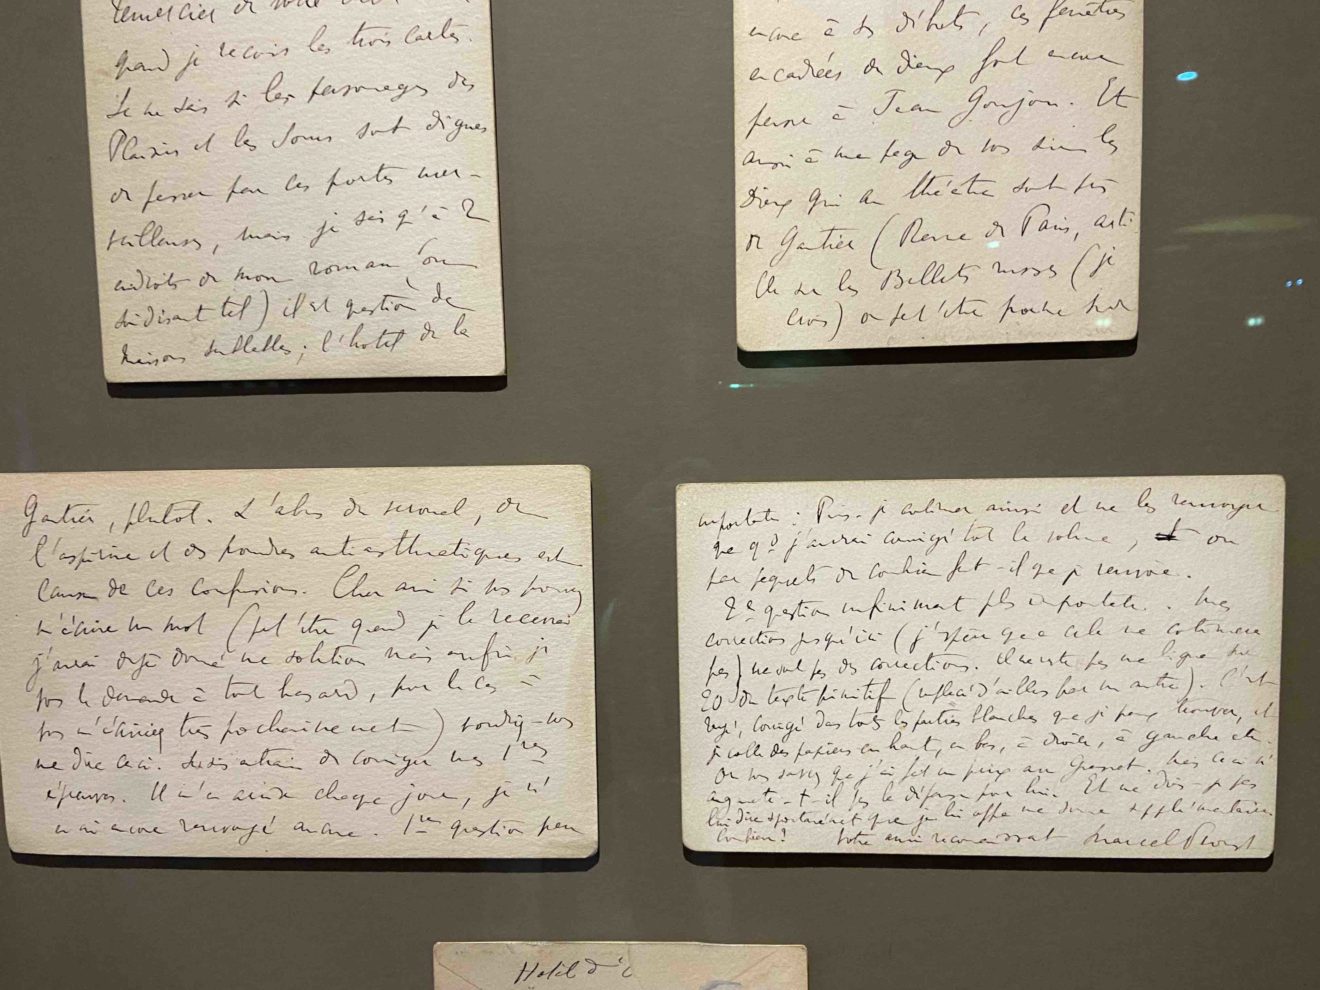 remercier de votre
quand je reçois les trois cartes.
Je ne sais si les personnages des
Plaisirs et les Jours sont dignes
de passer par ces portes mer-
veilleuses, mais je sais qu'à 2
endroits de mon roman (ou
soi disant tel) il est question de
maisons ; l'hotel de la
encore à ses débuts, ces fenêtres
encadrées de dieux font encore
penser à Jean Goujon. Et
aussi à une page de vous sur les
dieux qui au théâtre sont
de Gautier (Revue de Paris, arti-
cle sur les Ballets russes (je
crois) ou peut'être poème sur
Gautier, plutôt. L'abus du véronal, de
l'aspirine et des poudres antiasthmatiques est
cause de ces confusions. Cher ami si vous pouvez
m'écrire un mot (peut'être quand je le recevrai
j'aurai déjà donné une solution mais enfin je
vous le demande à tout hasard, pour le cas où
vous m'écririez très prochainement) voudriez-vous
me dire ceci. Je suis en train de corriger mes 1res
épreuves. Il m'en arrive chaque jour, je n'
en ai encore renvoyé aucune. 1re question peu
importante : Puis-je continuer ainsi et ne les renvoyer
que qd j'aurai corrigé tout le volume, ou
par paquets de combien faut-il que je renvoie.
2e question infiniment plus importante. Mes
corrections jusqu'ici (j'espère que cela ne continuera
pas) ne sont pas des corrections. Il ne reste pas une ligne sur
20 du texte primitif (remplacé d'ailleurs par un autre). C'est
rayé, corrigé dans toutes les parties blanches que je peux trouver, et
je colle des papiers en haut, en bas, à droite, à gauche etc.
Or vous savez que j'ai fait un prix avec Grasset. Mais ceci n'
augmente-t-il pas la dépense pour lui. Et ne dois-je pas
lui dire spontanément que je lui offre une somme supplémentaire
combien! Votre ami reconnaissant Marcel Proust
Hotel d'